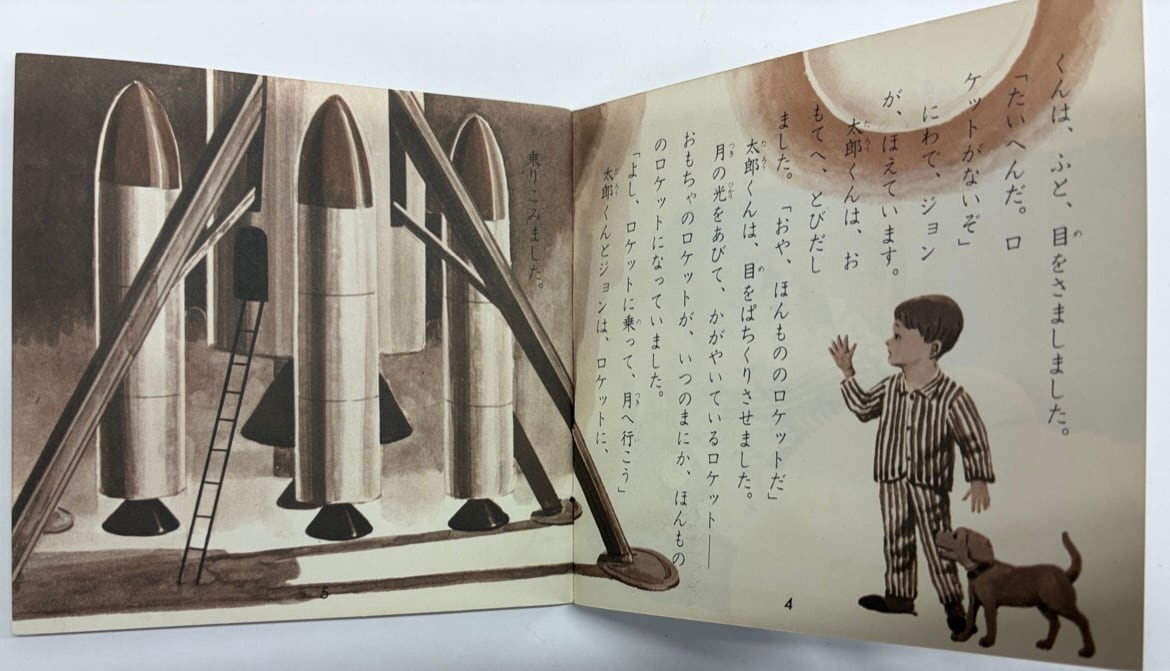 くんは、ふと、目をさましました。
「たいへんだ。ロ
ケットがないぞ」
にわで、ジョン
が、ほえています。
太郎くんは、お
もてへ、とびだし
ました。「おや、ほんもののロケットだ」
太郎くんは、目をぱちくりさせました。
月の光をあびて、かがやいているロケット――
おもちゃのロケットが、いつのまにか、ほんもの
のロケットになっていました。
「よし、ロケットに乗って、月へ行こう」
太郎くんとジョンは、ロケットに、
乗りこみました。
4
5